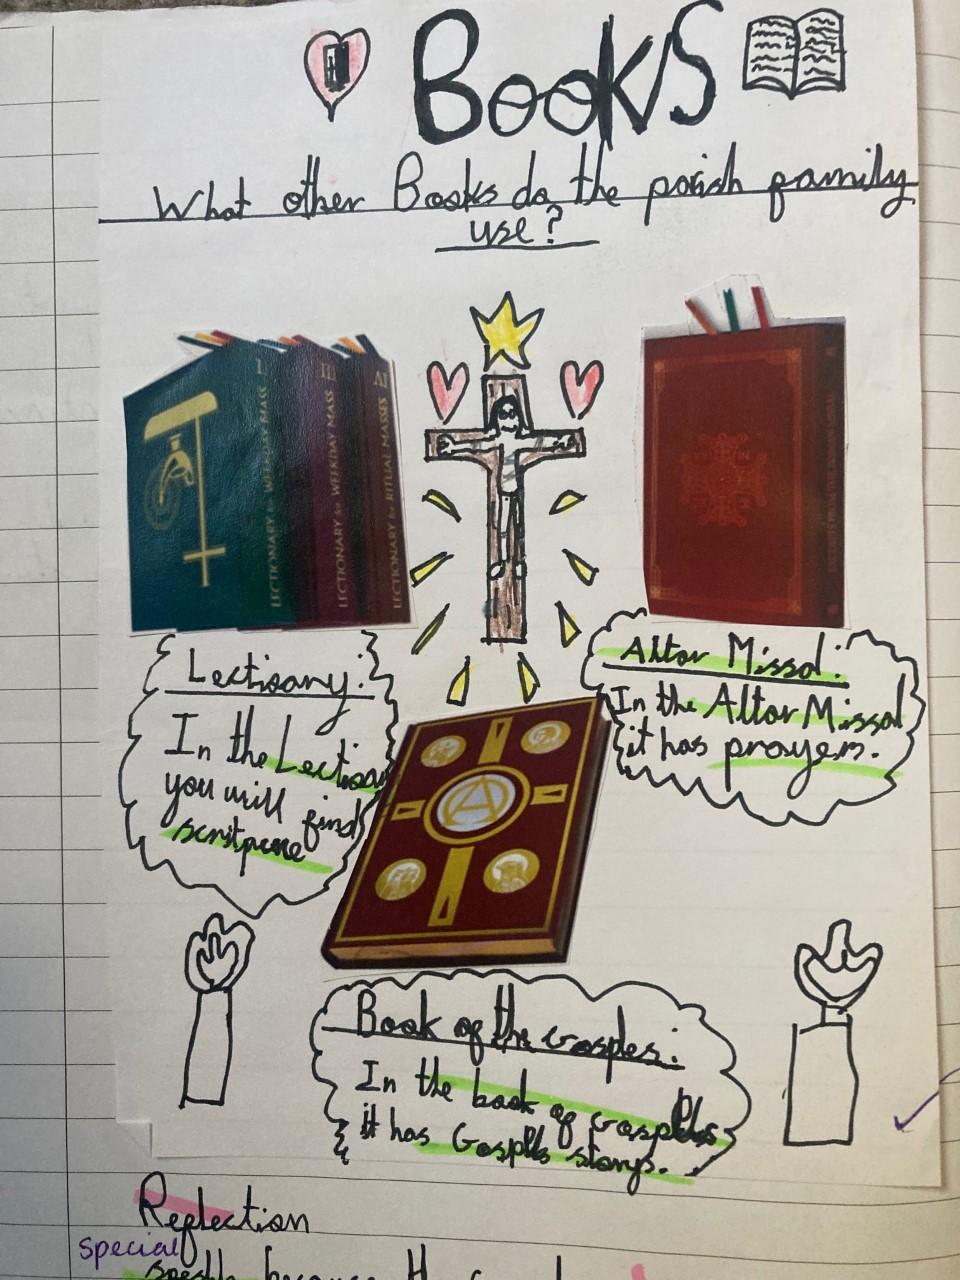 Books
What other Books do the parish family
use?
I
LECTIONARY for WEEKDAY MASS
III
LECTIONARY for WEEKDAY MASS
LECTIONARY for RITUAL MASSES
Lectionary:
In the Lection
you will find
scritpure
Altar Missal:
In the Altar Missal
it has prayers.
A
Book of the Gosples:
In the book of Gosples
it has Gosples storys.
Reflection
special
because the